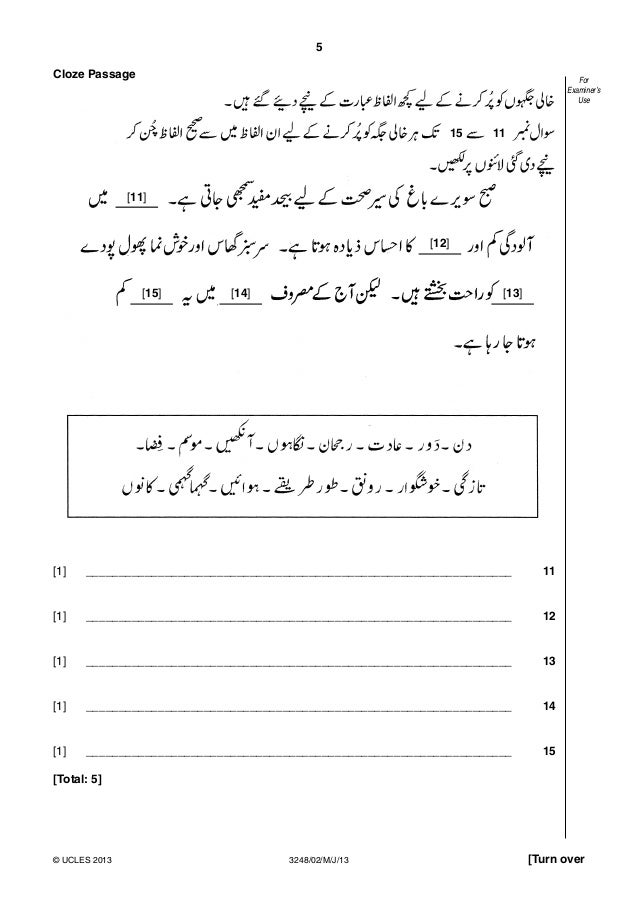 5
Cloze Passage
For
Examiner's
Use
خالی جگہوں کو پُر کرنے کے لیے کچھ الفاظ عبارت کے نیچے دیئے گئے ہیں۔
سوال نمبر 11 سے 15 تک ہر خالی جگہ کو پُر کرنے کے لیے ان الفاظ میں سے صحیح الفاظ چُن کر
نیچے دی گئی لائنوں پر لکھیں۔
صبح سویرے باغ کی سیر صحت کے لیے بیحد مفید سمجھی جاتی ہے۔ [11] میں
آلودگی کم اور [12] کا احساس زیادہ ہوتا ہے۔ سرسبز گھاس اور خوش نما پھول پودے
[13] کو راحت بخشتے ہیں۔ لیکن آج کے مصروف [14] میں یہ [15] کم
ہوتا جا رہا ہے۔
دن۔ دَور ۔ عادت ۔ رجحان ۔ نگاہوں ۔ آنکھیں ۔ موسم ۔ فِضا۔
تازگی ۔ خوشگوار ۔ رونق ۔ طور طریقے ۔ ہوائیں ۔ گہما گہمی ۔ کانوں
[1] 11
[1] 12
[1] 13
[1] 14
[1] 15
[Total: 5]
© UCLES 2013 3248/02/M/J/13 [Turn over